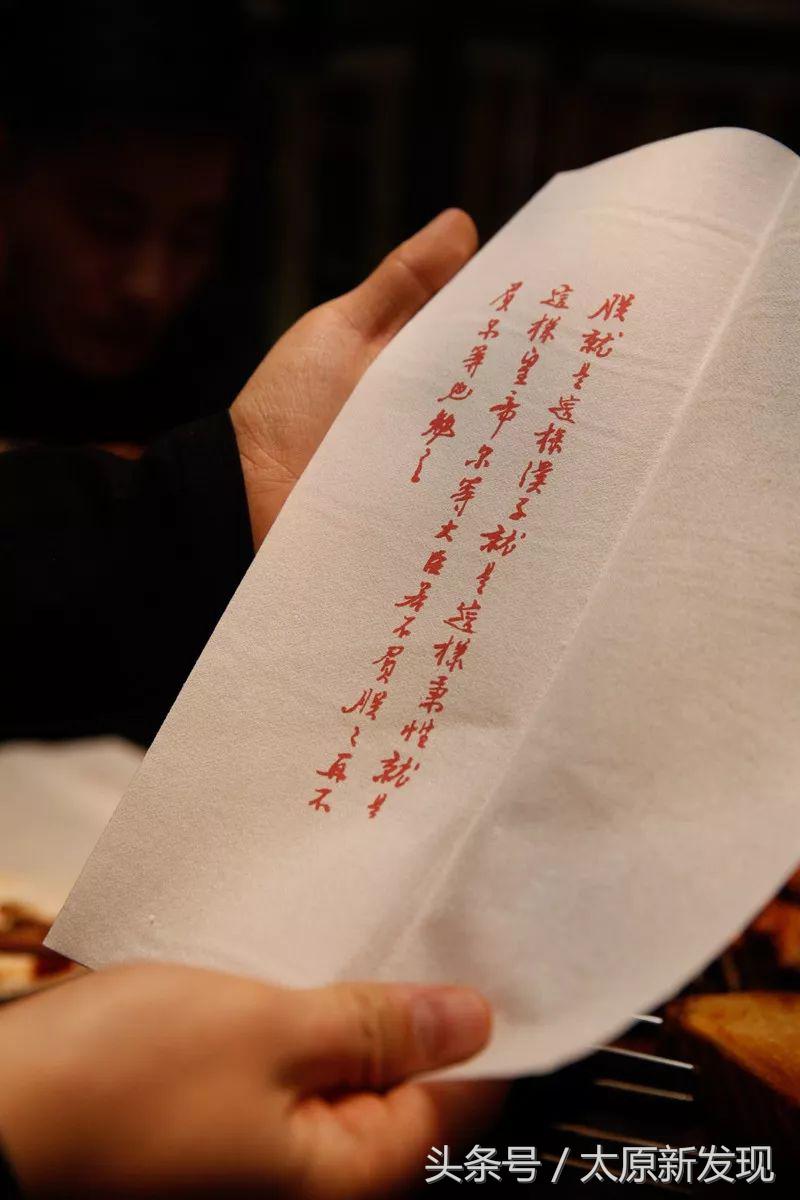 朕就是這樣漢子就是這樣秉性就是
這樣皇帝尔等大臣若不負朕々再不
負尔等也勉之
头条号 / 太原新发现